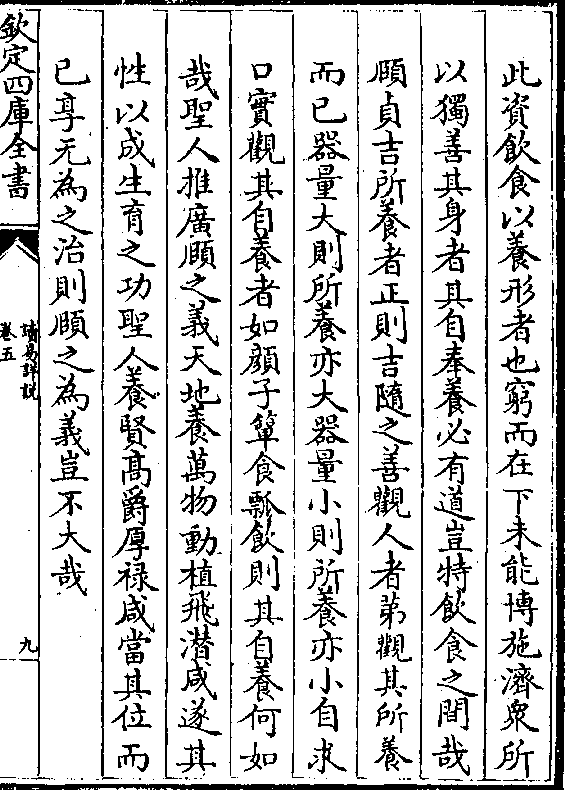 此資飲食以養形者也窮而在下未能博施濟衆所
以獨善其身者其自奉養必有道豈特飲食之間哉
頤貞吉所養者正則吉隨之善觀人者苐觀其所養
而已器量大則所養亦大器量小則所養亦小自求
口實觀其自養者如顔子簞食瓢飲則其自養何如
哉聖人推廣頤之義天地養萬物動植飛潛咸遂其
性以成生育之功聖人養賢高爵厚禄咸當其位而
已享无為之治則頤之為義豈不大哉
欽定四庫全書
讀易詳說
卷五
九